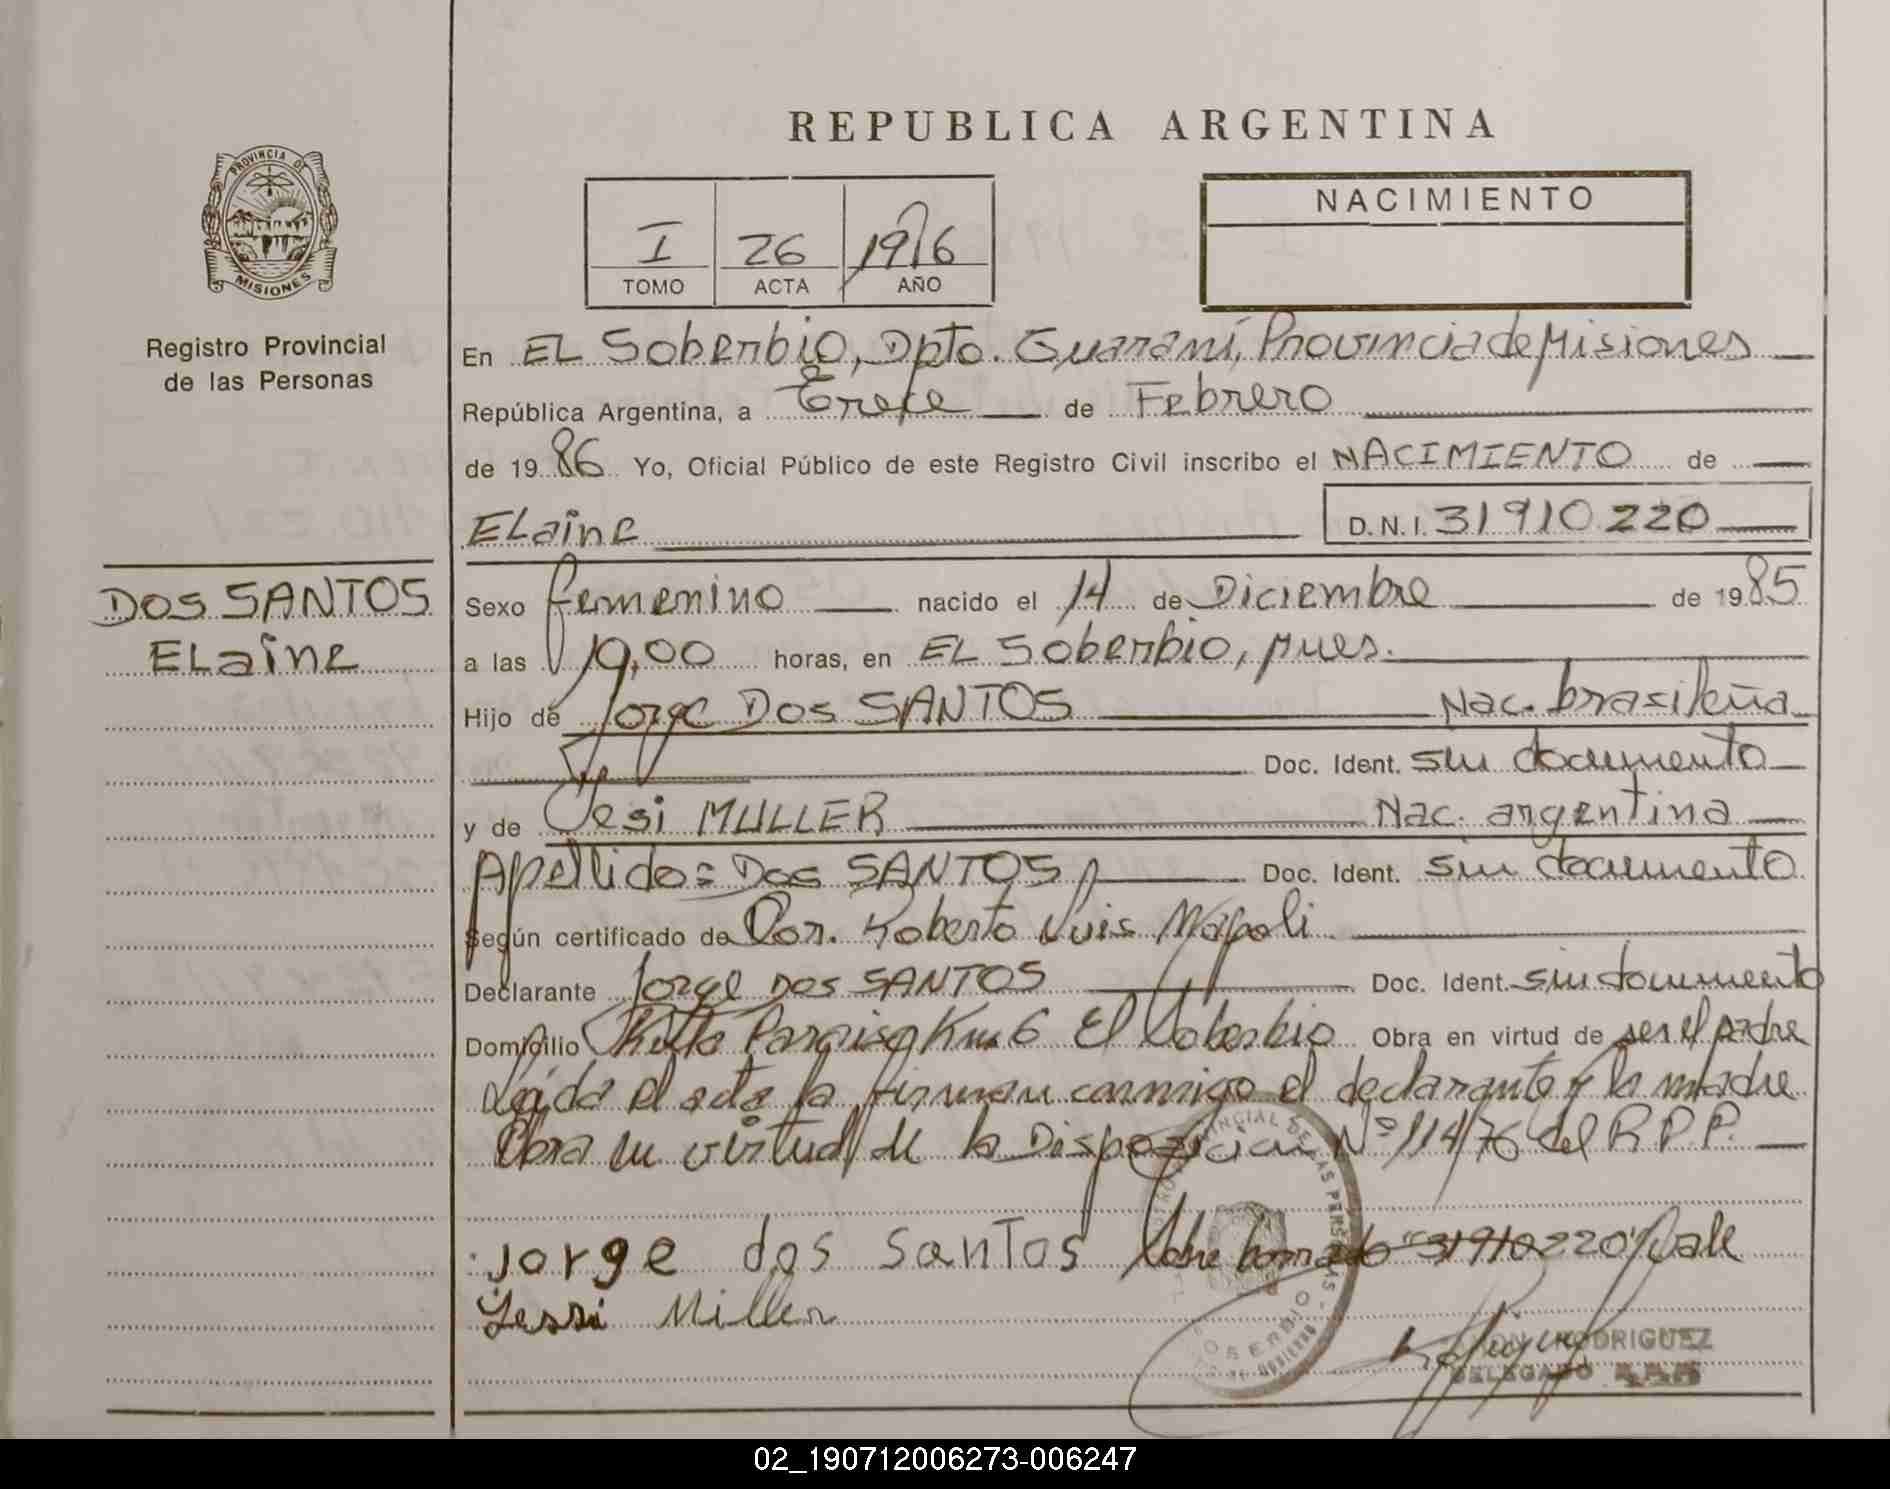 REPUBLICA ARGENTINA
PROVINCIA DE
MISIONES
Registro Provincial
de las Personas
I 26 1986
TOMO ACTA AÑO
NACIMIENTO
En EL Soberbio, Dpto. Guaraní, Provincia de Misiones
República Argentina, a Trece de Febrero
de 1986 Yo, Oficial Público de este Registro Civil inscribo el NACIMIENTO de
ELaine D.N.I. 31910.220
DOS SANTOS
ELaine
Sexo femenino nacido el 14 de Diciembre de 1985
a las 19,00 horas, en EL Soberbio, Mnes.
Hijo de Jorge DOS SANTOS Nac. brasileña
Doc. Ident. sin documento
y de Jesi MULLER Nac. argentina
Apellido: Dos SANTOS Doc. Ident. sin documento
Según certificado de Dor. Roberto Luis Napoli
Declarante Jorge Dos SANTOS Doc. Ident. sin documento
Domicilio Paraiso Km 6 El Soberbio Obra en virtud de ser el padre
Leída el acta la firman conmigo el declarante y la madre
Obra en virtud de la Disposición Nº 114/76 del R.P.P.
jorge dos santos Sobre borrado "31910220" Vale
Yessi Miller
RODRIGUEZ
DELEGADO
02_190712006273-006247